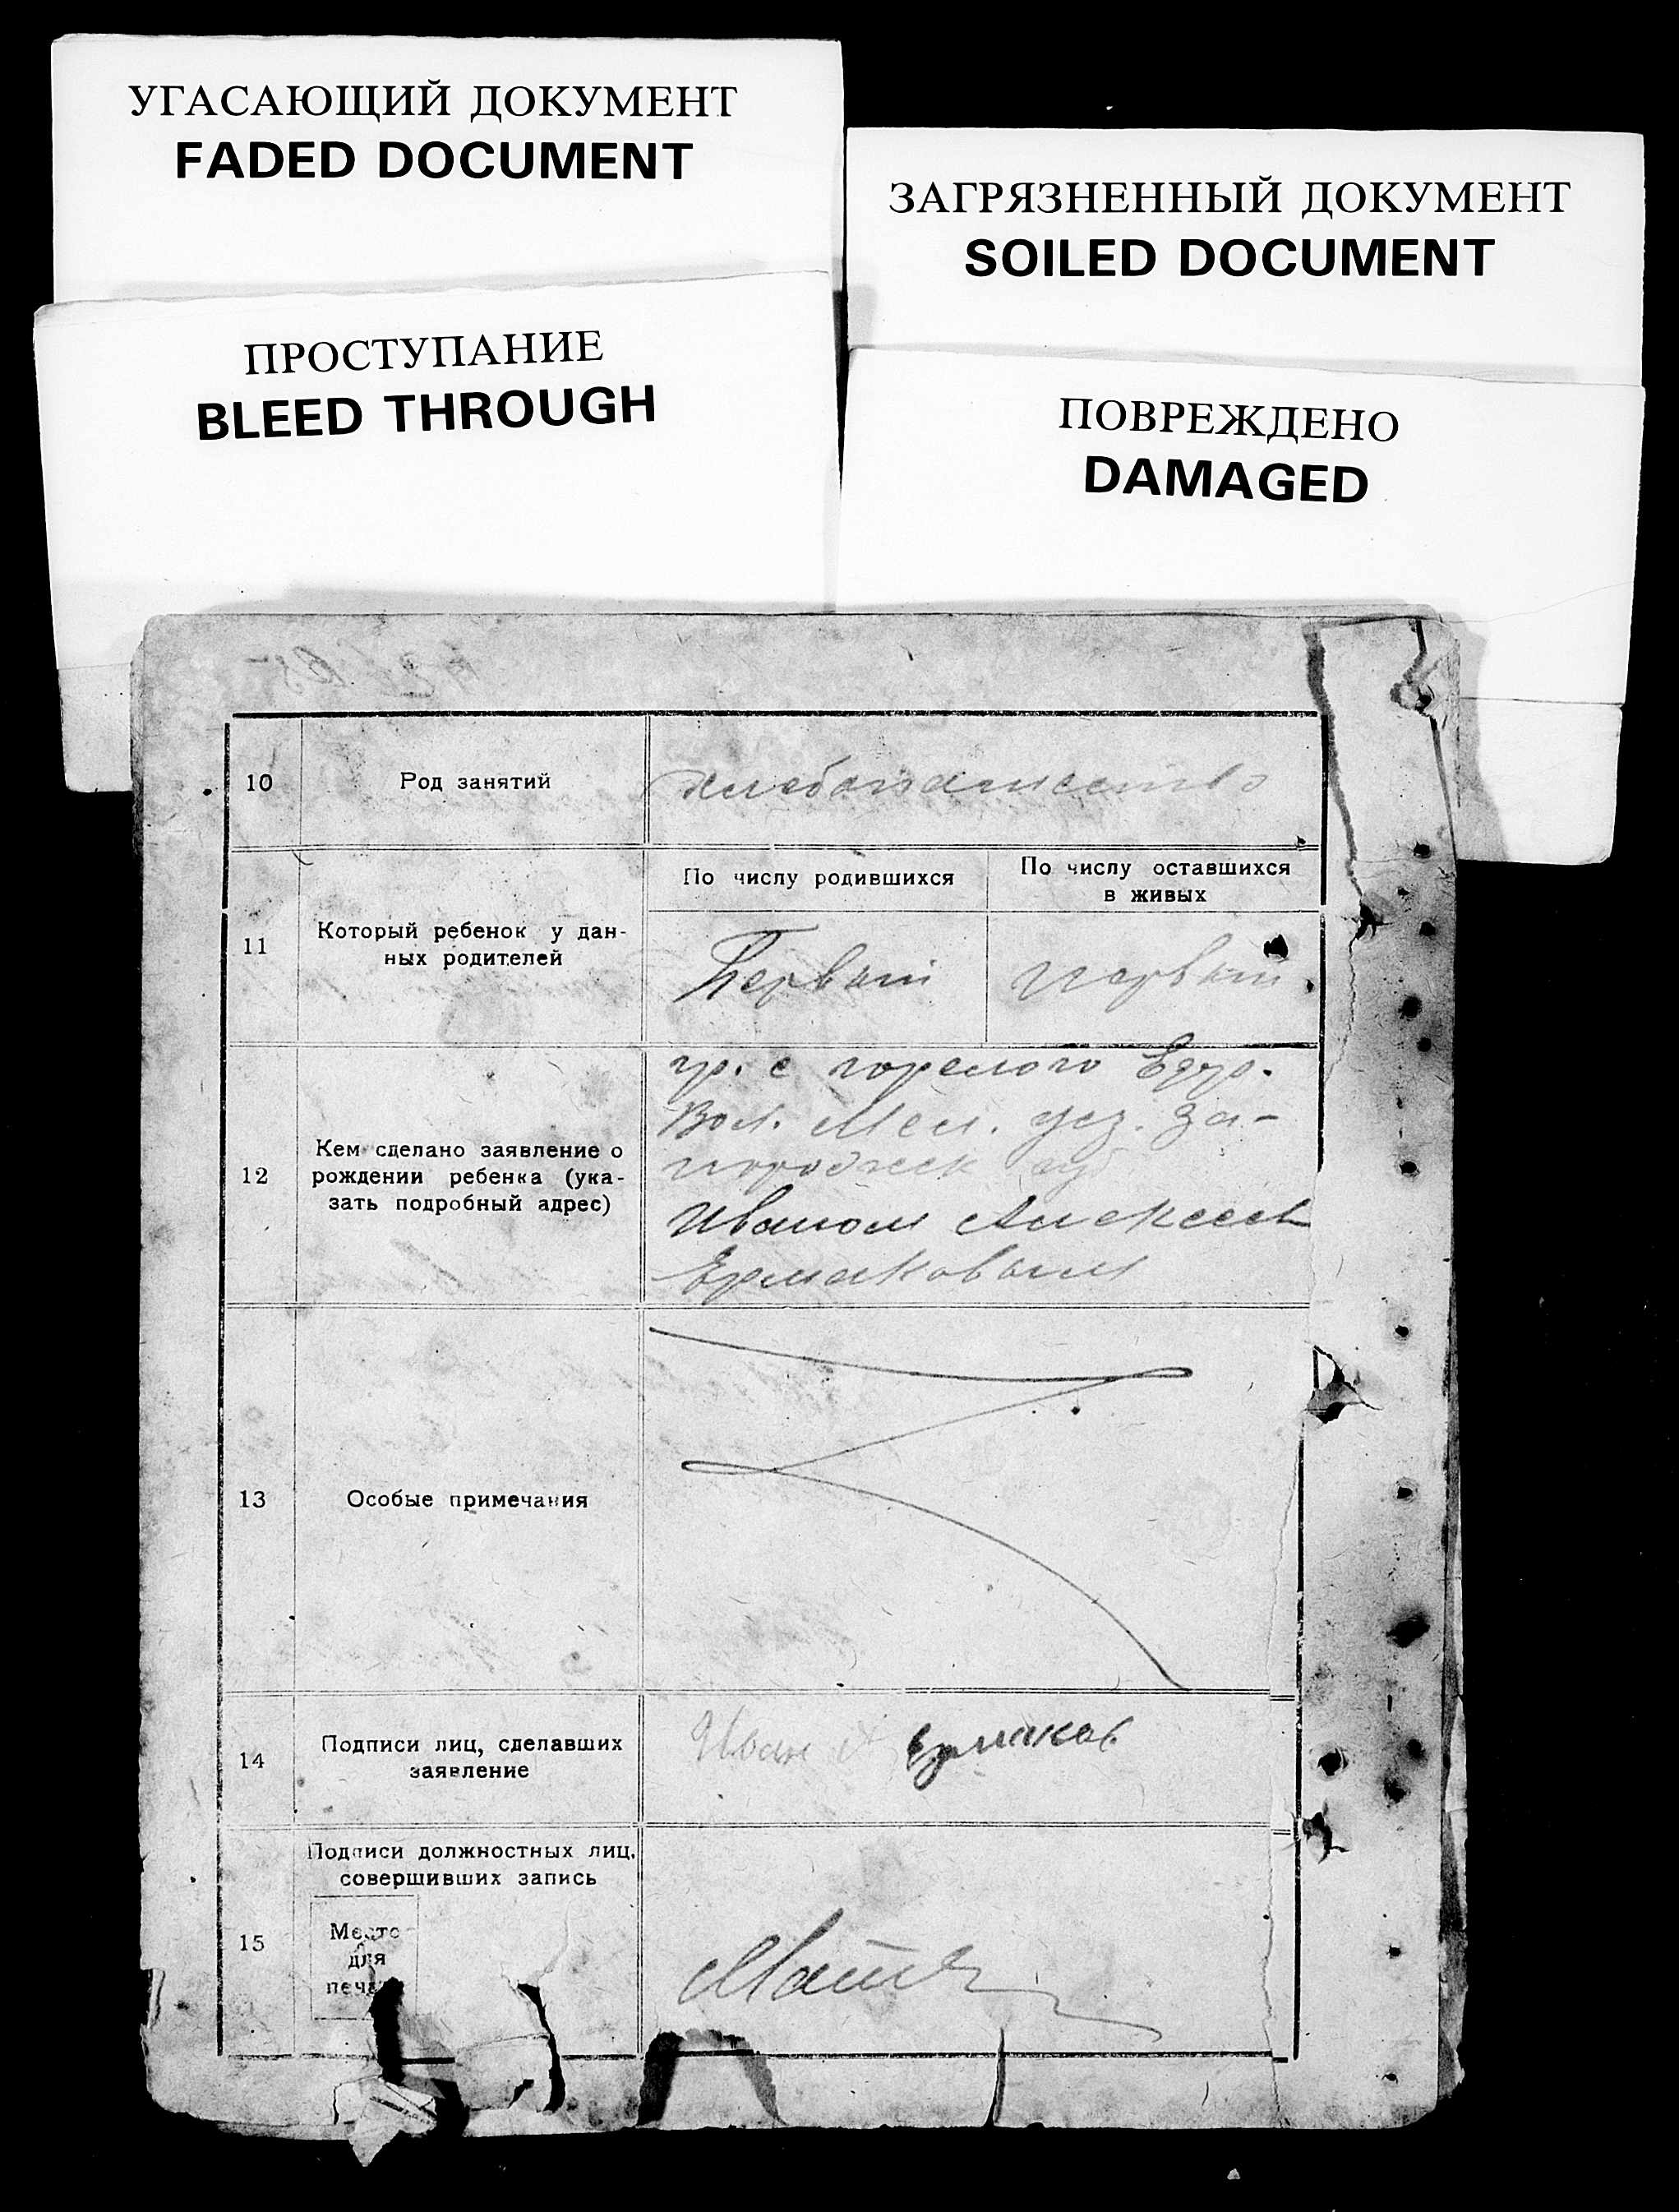 УГАСАЮЩИЙ ДОКУМЕНТ
FADED DOCUMENT
ЗАГРЯЗНЕННЫЙ ДОКУМЕНТ
SOILED DOCUMENT
ПРОСТУПАНИЕ
BLEED THROUGH
ПОВРЕЖДЕНО
DAMAGED
10
Род занятий
хлебопашество
11
Который ребенок у дан-
ных родителей
По числу родившихся
По числу оставшихся
в живых
Первый
первый
12
Кем сделано заявление о
рождении ребенка (ука-
зать подробный адрес)
гр. с горелого
Вол. Мел. уез. За-
порожск губ
Иваном Алексеев
Ермаковым
13
Особые примечания
14
Подписи лиц, сделавших
заявление
Иван А Ермаков
15
Подписи должностных лиц,
совершивших запись
Место
для